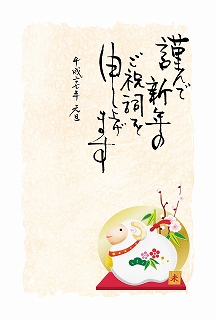 謹んで
新年の
ご祝詞を
申し上げ
ます
平成二七年 元旦
未